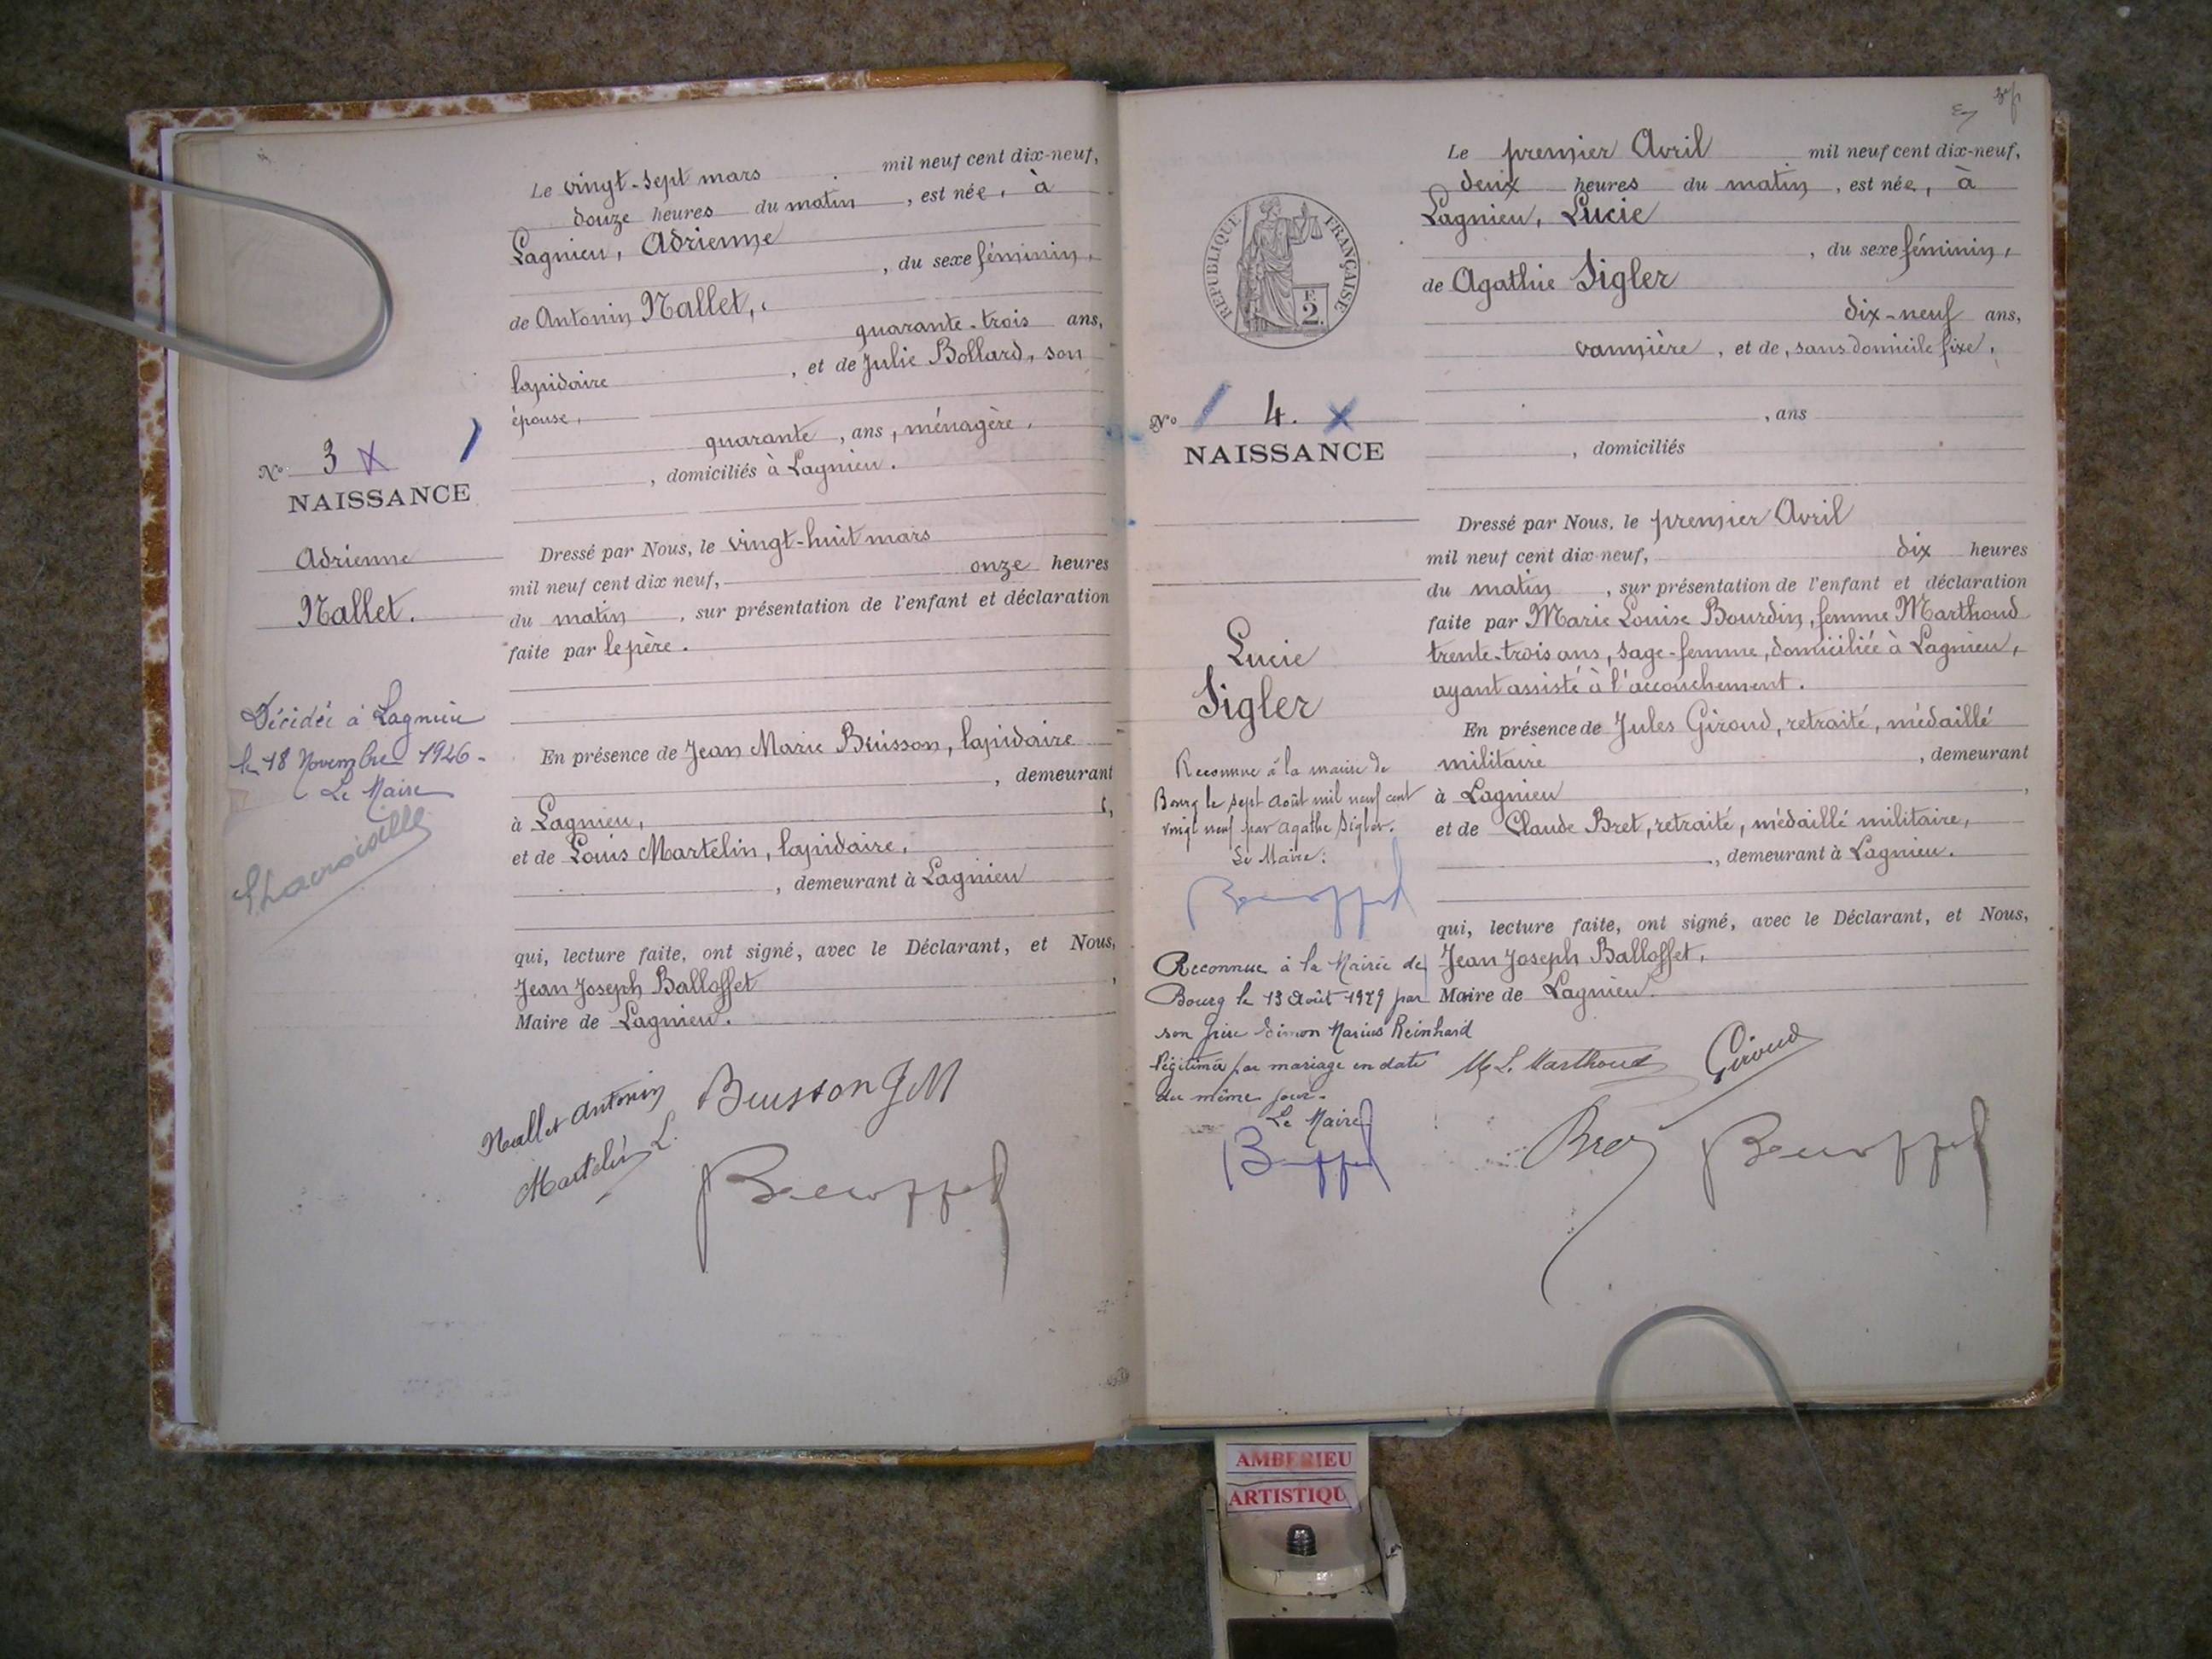 Le vingt-sept mars mil neuf cent dix-neuf,
douze heures du matin, est née, à
Lagnieu, Adrienne
, du sexe féminin,
de Antonin Nallet,
quarante-trois ans,
lapidaire, et de Julie Bollard, son
épouse,
quarante, ans, ménagère,
, domiciliés à Lagnieu.
No 3
NAISSANCE
Adrienne
Nallet.
Dressé par Nous, le vingt-huit mars
mil neuf cent dix neuf, onze heures
du matin, sur présentation de l'enfant et déclaration
faite par le père.
Décédée à Lagnieu
le 18 Novembre 1926-
Le Maire
En présence de Jean Marie Buisson, lapidaire
, demeurant
à Lagnieu,
et de Louis Martelin, lapidaire,
, demeurant à Lagnieu
qui, lecture faite, ont signé, avec le Déclarant, et Nous,
Jean Joseph Balloffet
Maire de Lagnieu.
Nallet Antonin
Buisson JM
Martelin L.
Le premier Avril mil neuf cent dix-neuf,
deux heures du matin, est née, à
Lagnieu, Lucie
, du sexe féminin,
de Agathe Sigler
dix-neuf ans,
vannière, et de, sans domicile fixe,
, ans
, domiciliés
REPUBLIQUE FRANÇAISE
F. 2.
No 4.
NAISSANCE
Lucie
Sigler
Dressé par Nous, le premier Avril
mil neuf cent dix-neuf, dix heures
du matin, sur présentation de l'enfant et déclaration
faite par Marie Louise Bourdin, femme Marthoud
trente-trois ans, sage-femme, domiciliée à Lagnieu,
ayant assisté à l'accouchement.
En présence de Jules Giroud, retraité, médaillé
militaire, demeurant
à Lagnieu,
et de Claude Bret, retraité, médaillé militaire,
, demeurant à Lagnieu.
qui, lecture faite, ont signé, avec le Déclarant, et Nous,
Jean Joseph Balloffet,
Maire de Lagnieu.
Reconnue à la mairie de
Bourg le sept Août mil neuf cent
vingt neuf par Agathe Sigler.
Le Maire:
Reconnue à la Mairie de
Bourg le 13 Août 1929 par
son père Simon Marius Reinhard
Légitimée par mariage en date
du même jour.
Le Maire
M. L. Marthoud
Giroud
Bret
AMBERIEU
ARTISTIQU